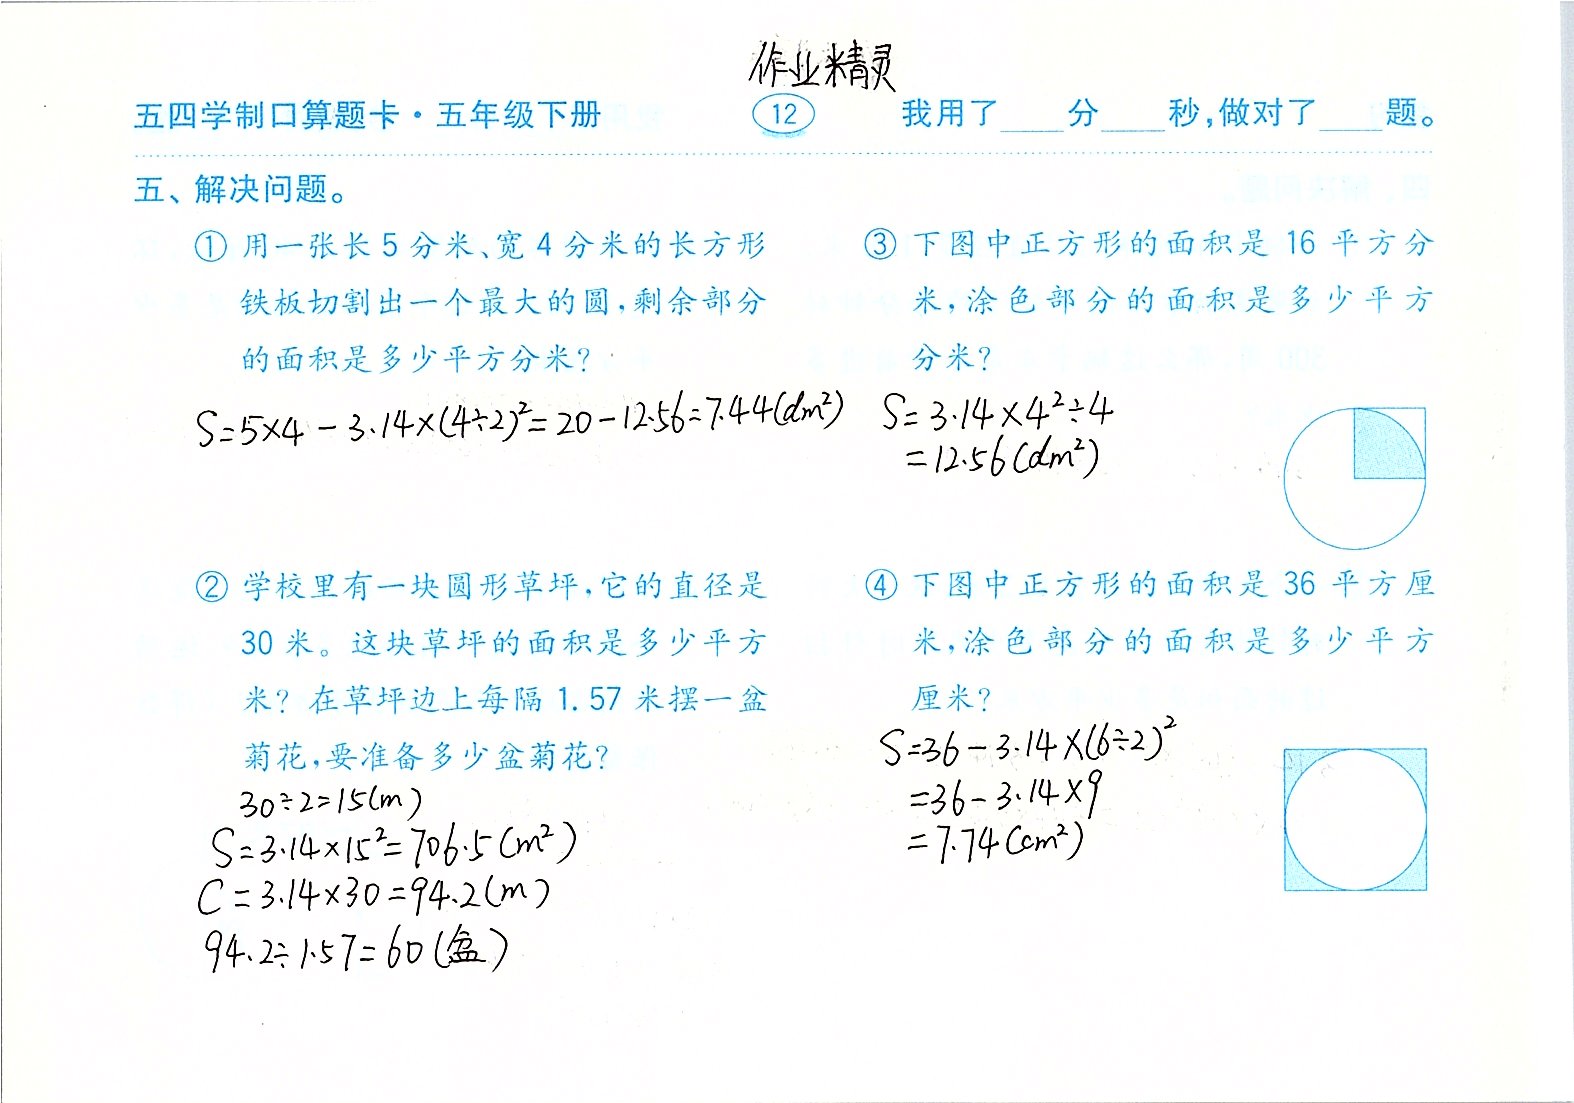 作业精灵
五四学制口算题卡·五年级下册 12 我用了____分____秒,做对了____题。
五、解决问题。
① 用一张长 5 分米、宽 4 分米的长方形
铁板切割出一个最大的圆,剩余部分
的面积是多少平方分米?
S=5×4-3.14×(4÷2)²=20-12.56=7.44(dm²)
② 学校里有一块圆形草坪,它的直径是
30 米。这块草坪的面积是多少平方
米? 在草坪边上每隔 1.57 米摆一盆
菊花,要准备多少盆菊花?
30÷2=15(m)
S=3.14×15²=706.5(m²)
C=3.14×30=94.2(m)
94.2÷1.57=60(盆)
③ 下图中正方形的面积是 16 平方分
米,涂色部分的面积是多少平方
分米?
S=3.14×4²÷4
=12.56(dm²)
④ 下图中正方形的面积是 36 平方厘
米,涂色部分的面积是多少平方
厘米?
S=36-3.14×(6÷2)²
=36-3.14×9
=7.74(cm²)